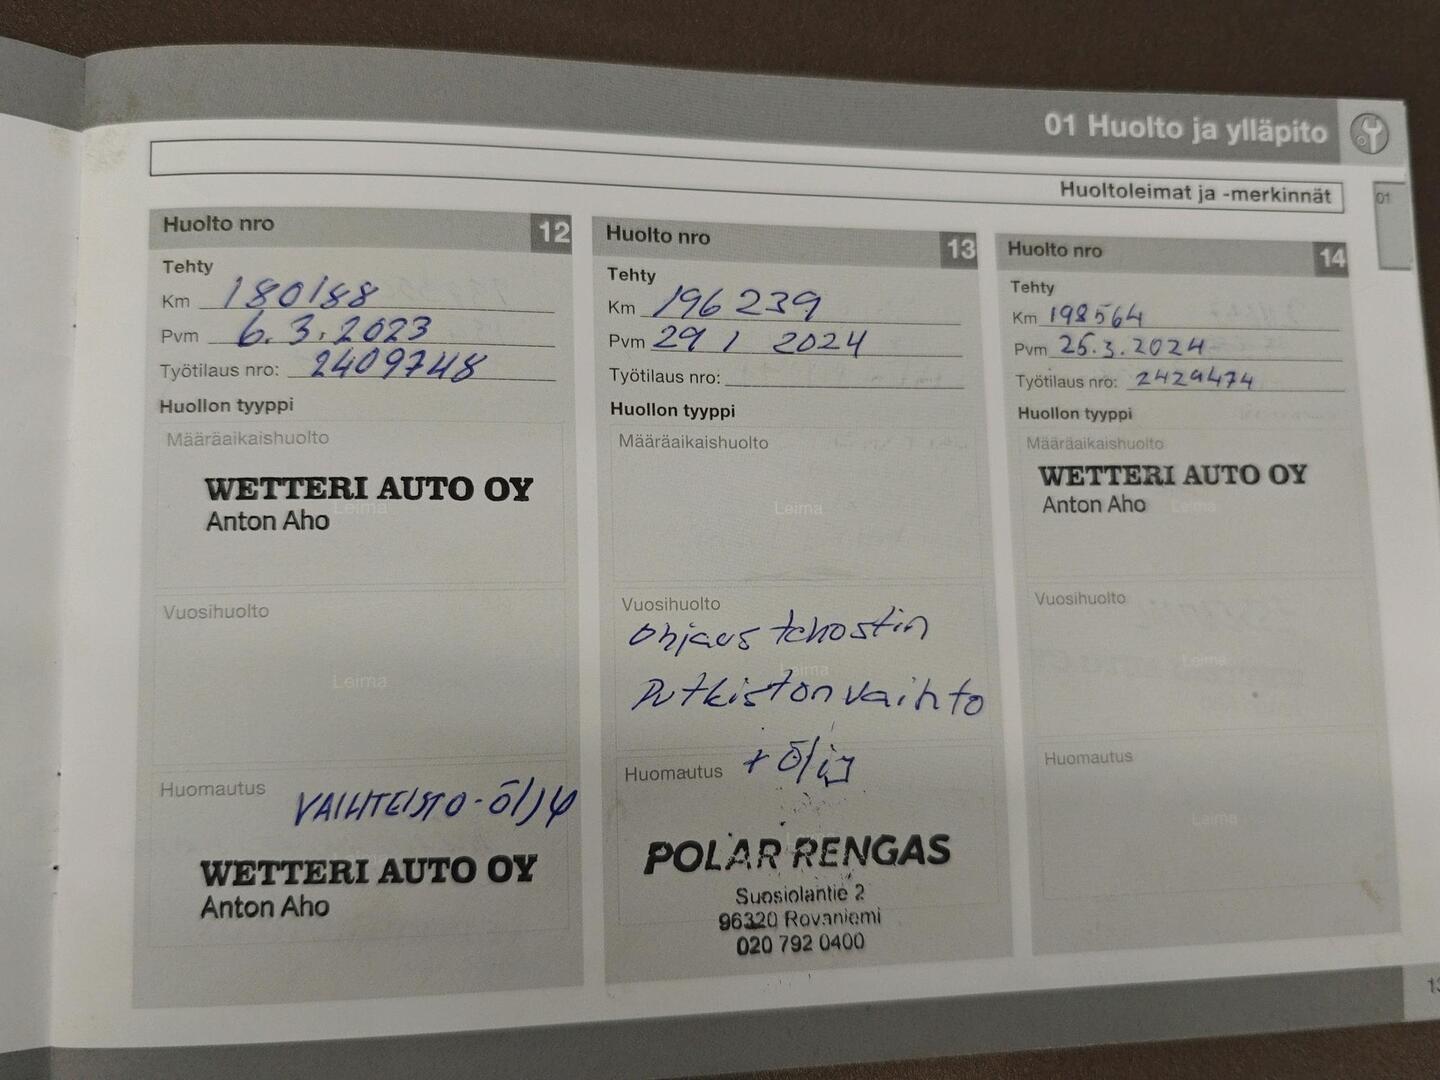 01 Huolto ja ylläpito
Huoltoleimat ja -merkinnät
01
Huolto nro 12
Tehty
Km 180188
Pvm 6.3.2023
Työtilaus nro: 2409748
Huollon tyyppi
Määräaikaishuolto
WETTERI AUTO OY
Leima
Anton Aho
Vuosihuolto
Leima
Huomautus
VAIHTEISTO-ÖLJY
WETTERI AUTO OY
Anton Aho
Huolto nro 13
Tehty
Km 196 239
Pvm 29 1 2024
Työtilaus nro:
Huollon tyyppi
Määräaikaishuolto
Leima
Vuosihuolto
Ohjaus tehostin
Leima
Putkiston vaihto
+ Öljy
Huomautus
Leima
POLAR RENGAS
Suosiolantie 2
96320 Rovaniemi
020 792 0400
Huolto nro 14
Tehty
Km 198564
Pvm 25.3.2024
Työtilaus nro: 2429474
Huollon tyyppi
Määräaikaishuolto
WETTERI AUTO OY
Anton Aho
Leima
Vuosihuolto
Leima
Huomautus
Leima